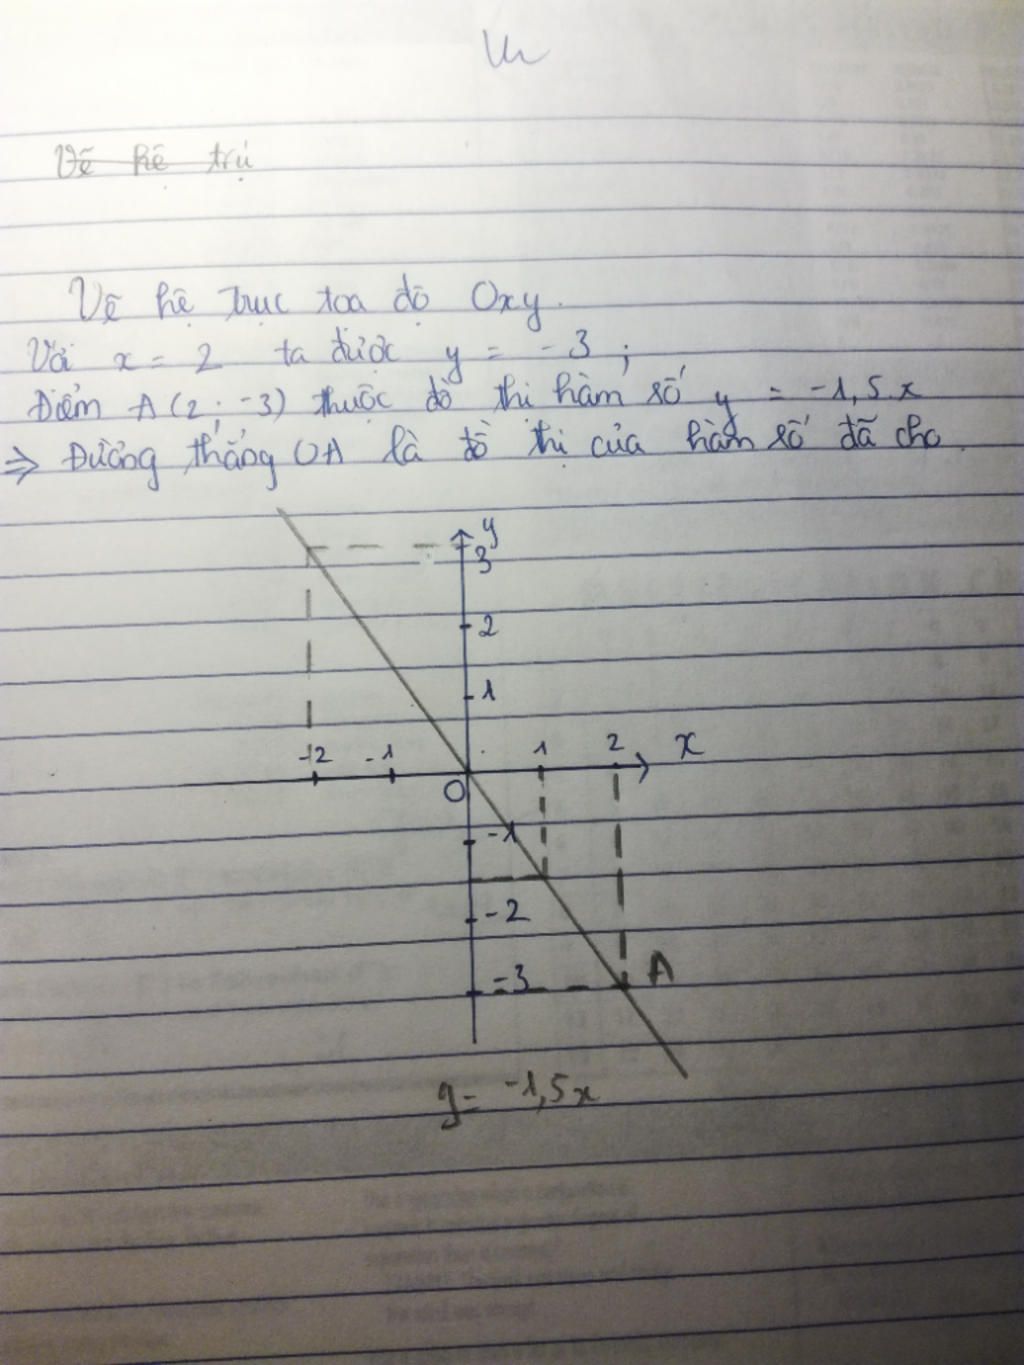 Vẽ hệ trụ
Vẽ hệ trục toạ độ Oxy.
Với x = 2 ta được y = -3 ;
Điểm A(2; -3) thuộc đồ thị hàm số y = -1,5.x
⇒ Đường thẳng OA là đồ thị của hàm số đã cho.
y
3
2
1
-2 -1 1 2 x
O
-1
-2
-3 A
y= -1,5x